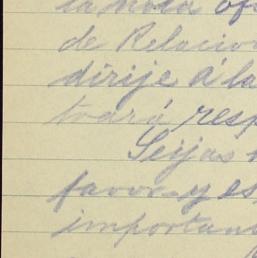 la nota ofi
de Relacion
dirije á la
todrá resp
Seijas
favor y es
importan